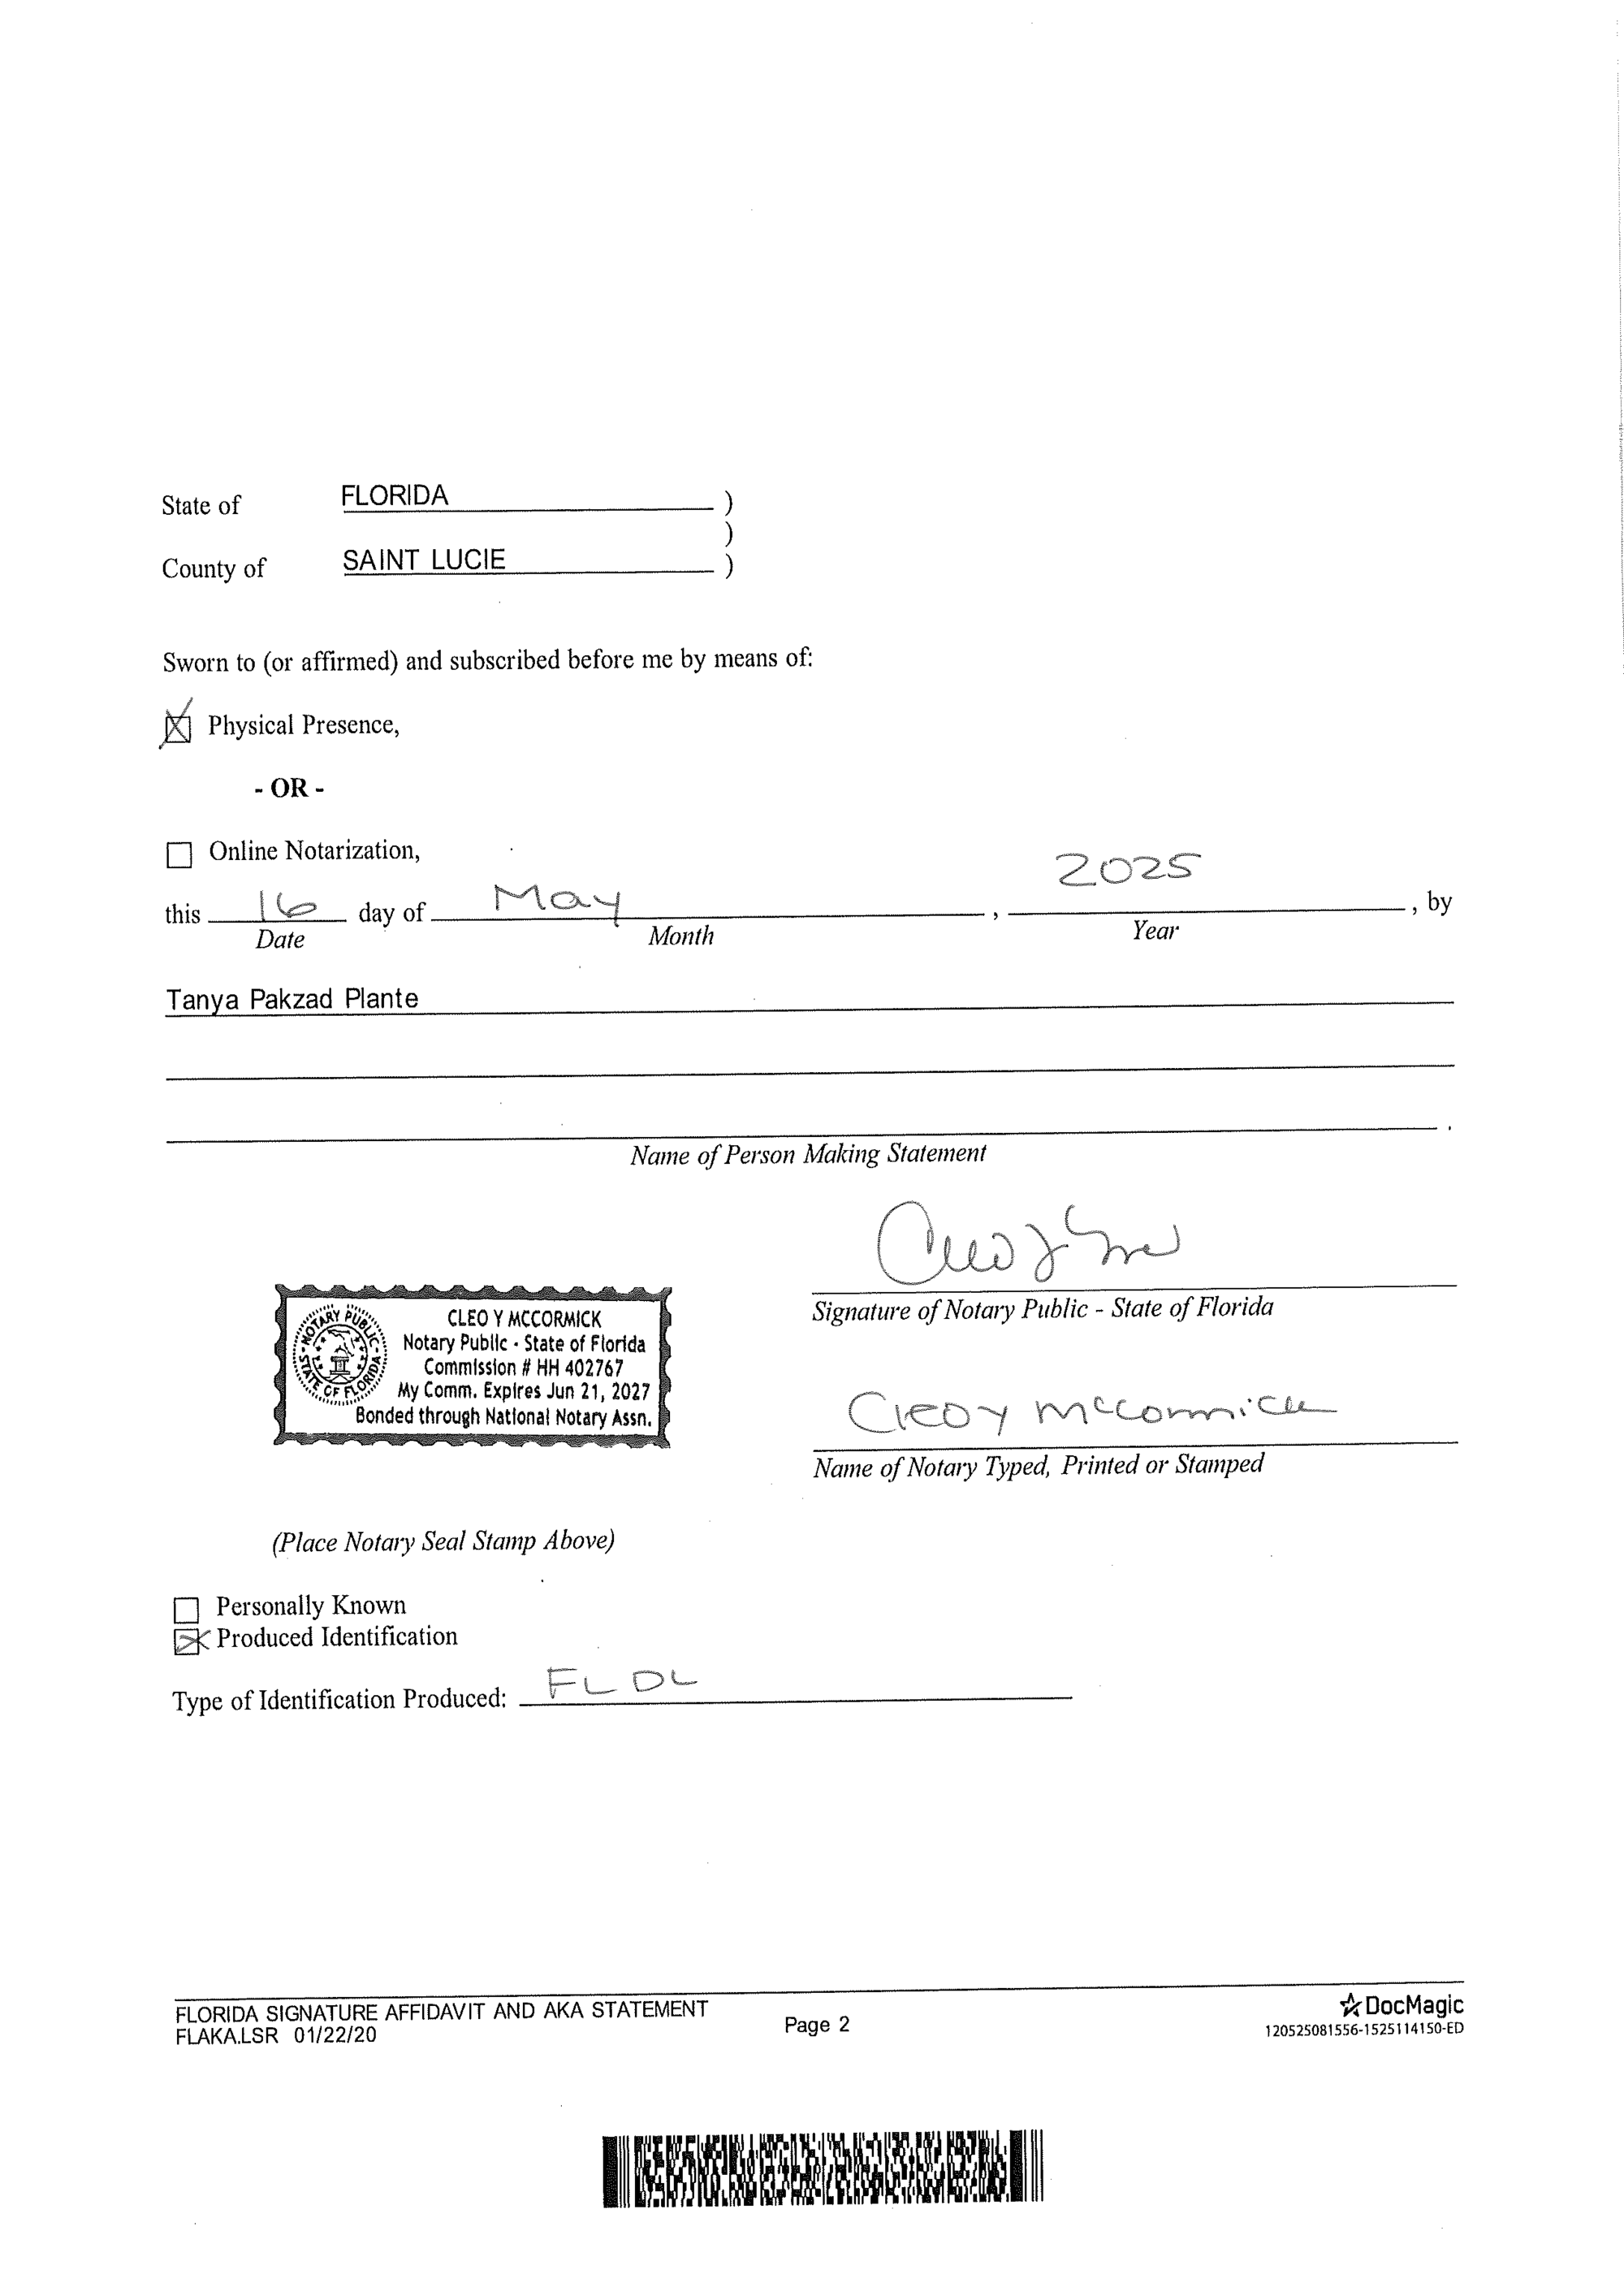 State of FLORIDA )
)
County of SAINT LUCIE )
Sworn to (or affirmed) and subscribed before me by means of:
Physical Presence,
- OR -
Online Notarization,
this 16 day of May , 2025 , by
Date Month Year
Tanya Pakzad Plante
.
Name of Person Making Statement
Signature of Notary Public - State of Florida
NOTARY PUBLIC STATE OF FLORIDA
CLEO Y MCCORMICK
Notary Public - State of Florida
Commission # HH 402767
My Comm. Expires Jun 21, 2027
Bonded through National Notary Assn.
Cleo Y McCormick
Name of Notary Typed, Printed or Stamped
(Place Notary Seal Stamp Above)
Personally Known
Produced Identification
Type of Identification Produced: FL DL
FLORIDA SIGNATURE AFFIDAVIT AND AKA STATEMENT
FLAKA.LSR 01/22/20
Page 2
DocMagic
120525081556-1525114150-ED